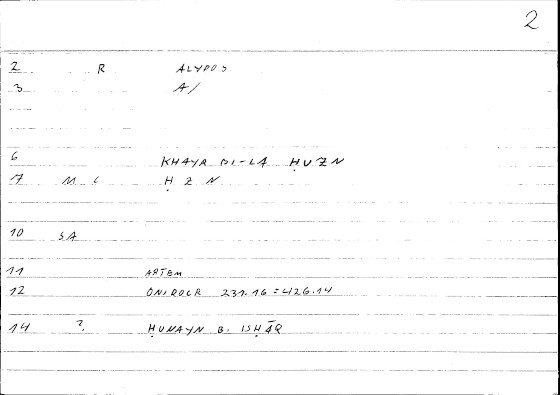 2
2 R ALYPOS
3 A/
6 KHAYR BI-LĀ ḤUZN
7 M C Ḥ Z N
10 SA
11 ARTEM
12 ONIROCR 231.16 = 426.14
14 ? ḤUNAYN B. ISḤĀQ